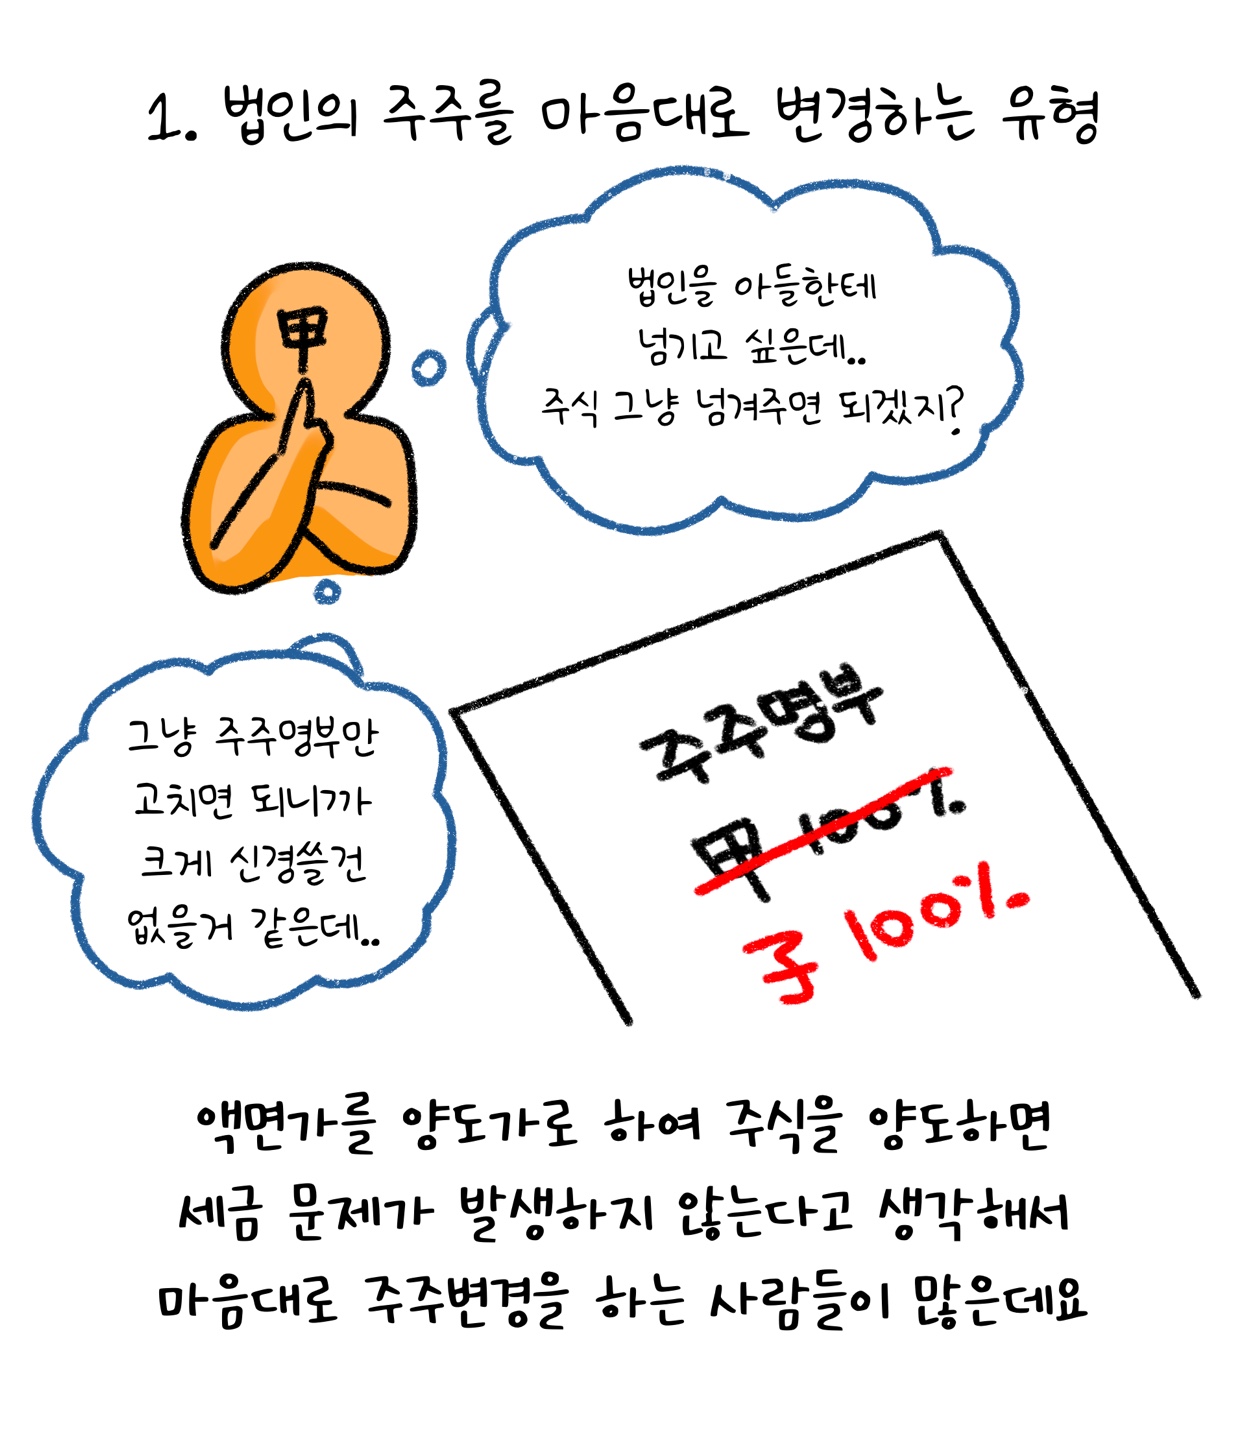 1. 법인의 주주를 마음대로 변경하는 유형
甲
법인을 아들한테
넘기고 싶은데..
주식 그냥 넘겨주면 되겠지?
그냥 주주명부만
고치면 되니까
크게 신경쓸건
없을거 같은데..
주주명부
甲 100%
子 100%
액면가를 양도가로 하여 주식을 양도하면
세금 문제가 발생하지 않는다고 생각해서
마음대로 주주변경을 하는 사람들이 많은데요